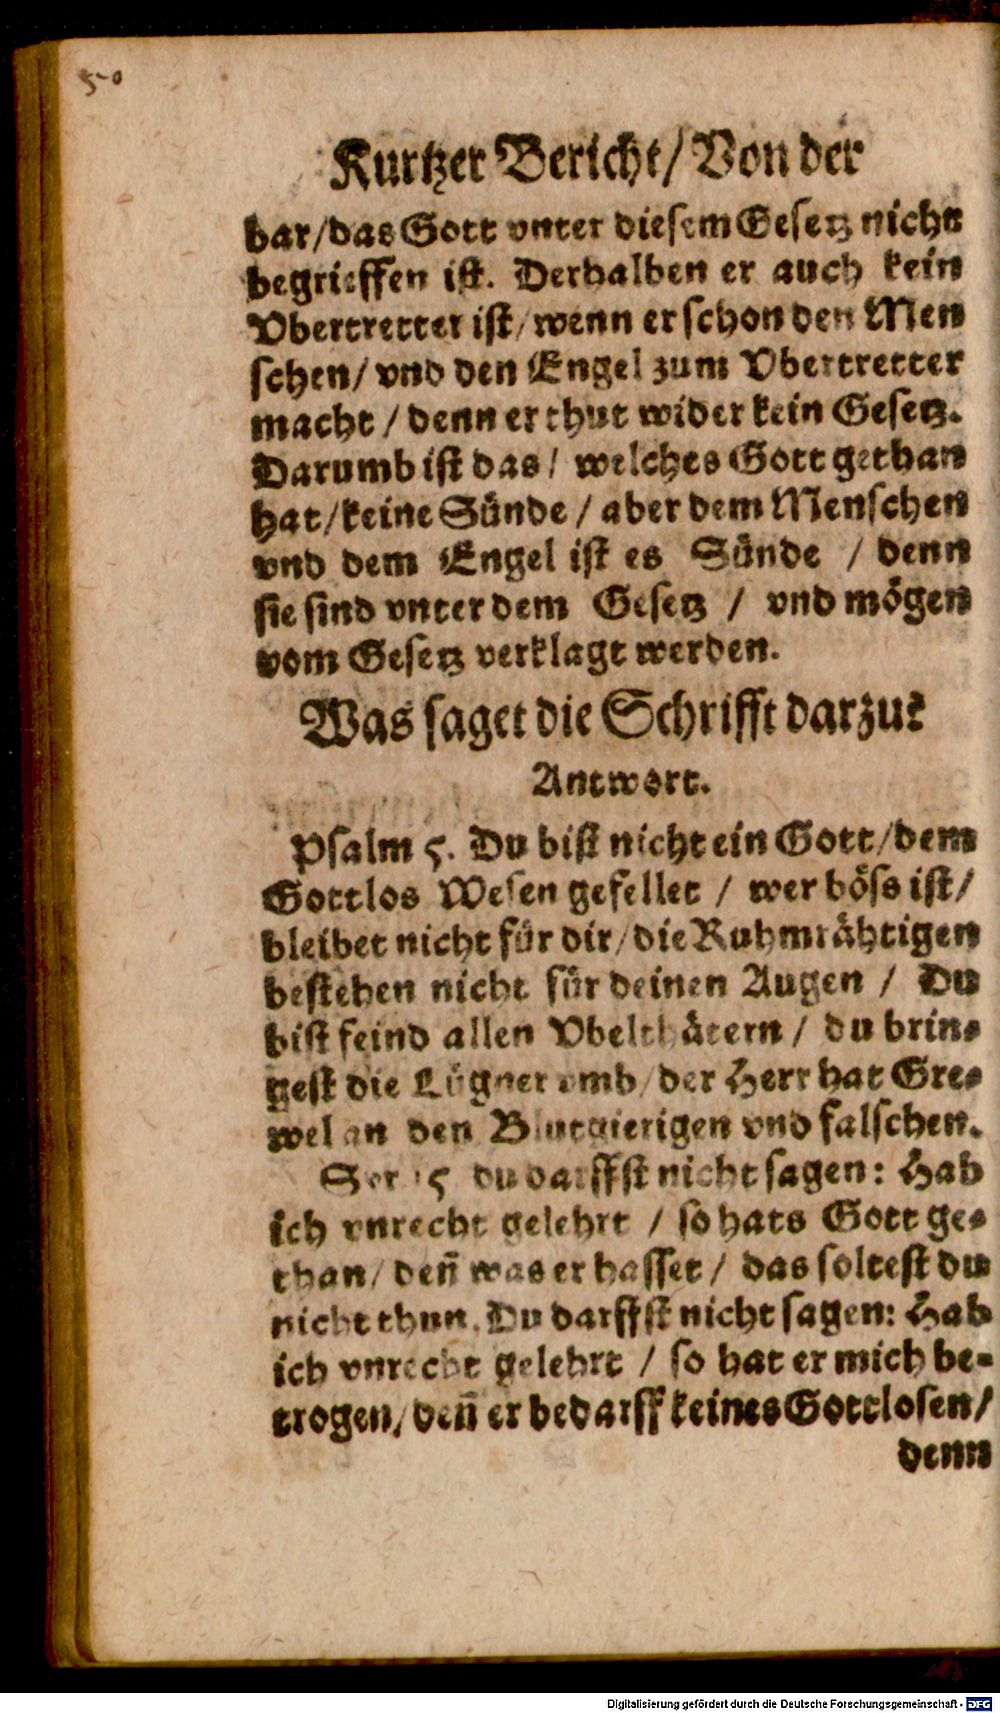 50
Kurtzer Bericht / Von der
bar / das Gott vnter diesem Gesetz nicht
begrieffen ist. Derhalben er auch kein
Vbertretter ist / wenn er schon den Men
schen / vnd den Engel zum Vbertretter
macht / denn er thut wider kein Gesetz.
Darumb ist das / welches Gott gethan
hat / keine Sünde / aber dem Menschen
vnd dem Engel ist es Sünde / denn
sie sind vnter dem Gesetz / vnd mögen
vom Gesetz verklagt werden.
Was saget die Schrifft darzu?
Antwort.
Psalm 5. Du bist nicht ein Gott / dem
Gottlos Wesen gefellet / wer böss ist /
bleibet nicht für dir / die Ruhmrähtigen
bestehen nicht für deinen Augen / Du
bist feind allen Vbelthätern / du brin-
gest die Lügner vmb / der Herr hat Gre-
wel an den Blutgierigen vnd falschen.
15 du darffst nicht sagen: Hab
ich vnrecht gelehrt / so hats Gott ge-
than / deñ was er hasset / das soltest du
nicht thun. Du darffst nicht sagen: Hab
ich vnrecht gelehrt / so hat er mich be-
trogen / deñ er bedarff keines Gottlosen /
denn
Digitalisierung gefördert durch die Deutsche Forschungsgemeinschaft - DFG